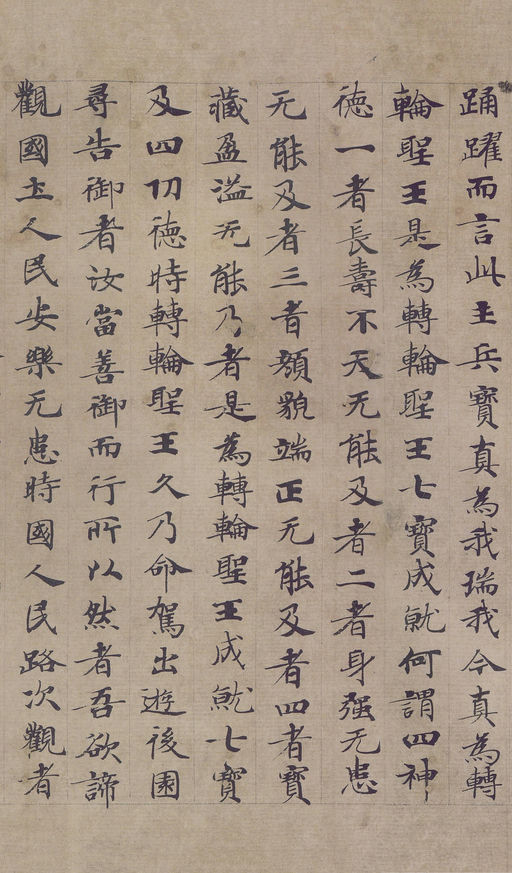 踊躍而言此主兵寶真為我瑞我今真為轉
輪聖王是為轉輪聖王七寶成就何謂四神
德一者長壽不夭无能及者二者身强无患
无能及者三者顏貌端正无能及者四者寶
藏盈溢无能乃者是為轉輪聖王成就七寶
及四刀德時轉輪聖王久乃命駕出遊後園
尋告御者汝當善御而行所以然者吾欲諦
觀國土人民安樂无患時國人民路次觀者